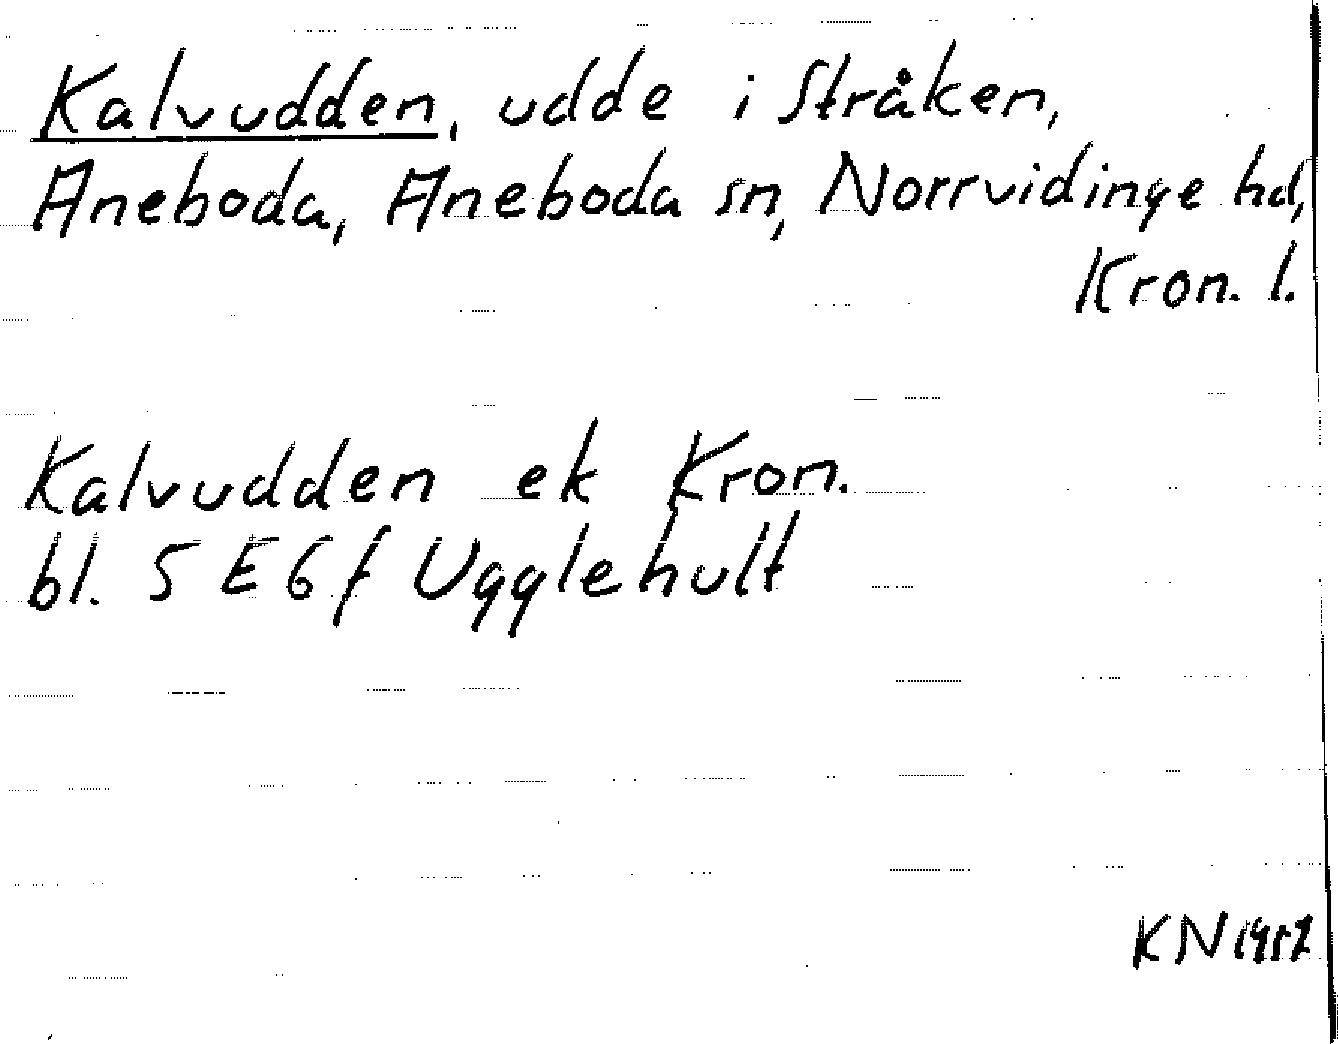 Kalvudden, udde i Stråken,
Aneboda, Aneboda sn, Norrvidinge hd,
Kron. l.
Kalvudden ek Kron.
bl. 5 E 6 f Ugglehult
KN 1952